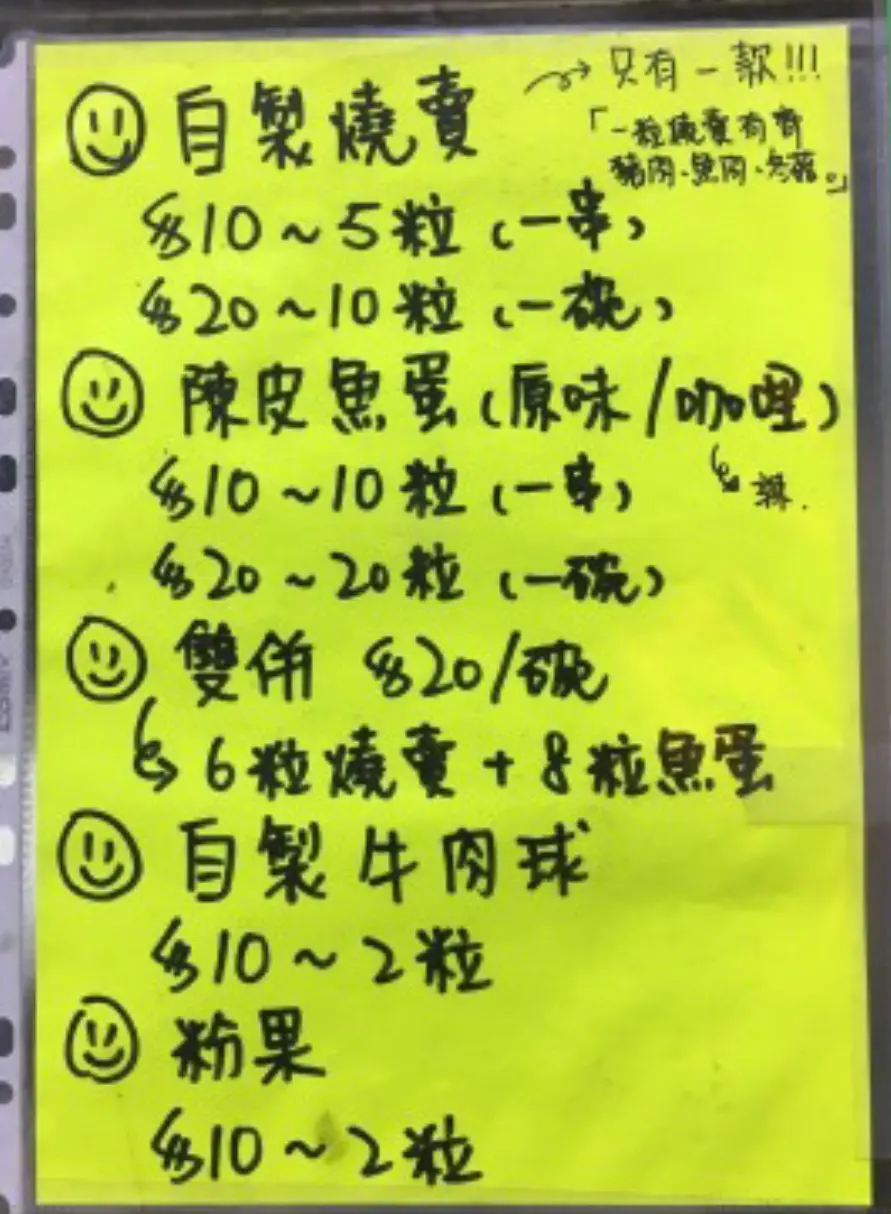 自製燒賣 → 只有一款!!!
「一粒燒賣有齊
豬肉、魚肉、冬菇。」
$10～5粒(一串)
$20～10粒(一碗)
陳皮魚蛋(原味/咖哩)
↳ 辣.
$10～10粒(一串)
$20～20粒(一碗)
雙併 $20/碗
↳ 6粒燒賣+8粒魚蛋
自製牛肉球
$10～2粒
粉果
$10～2粒